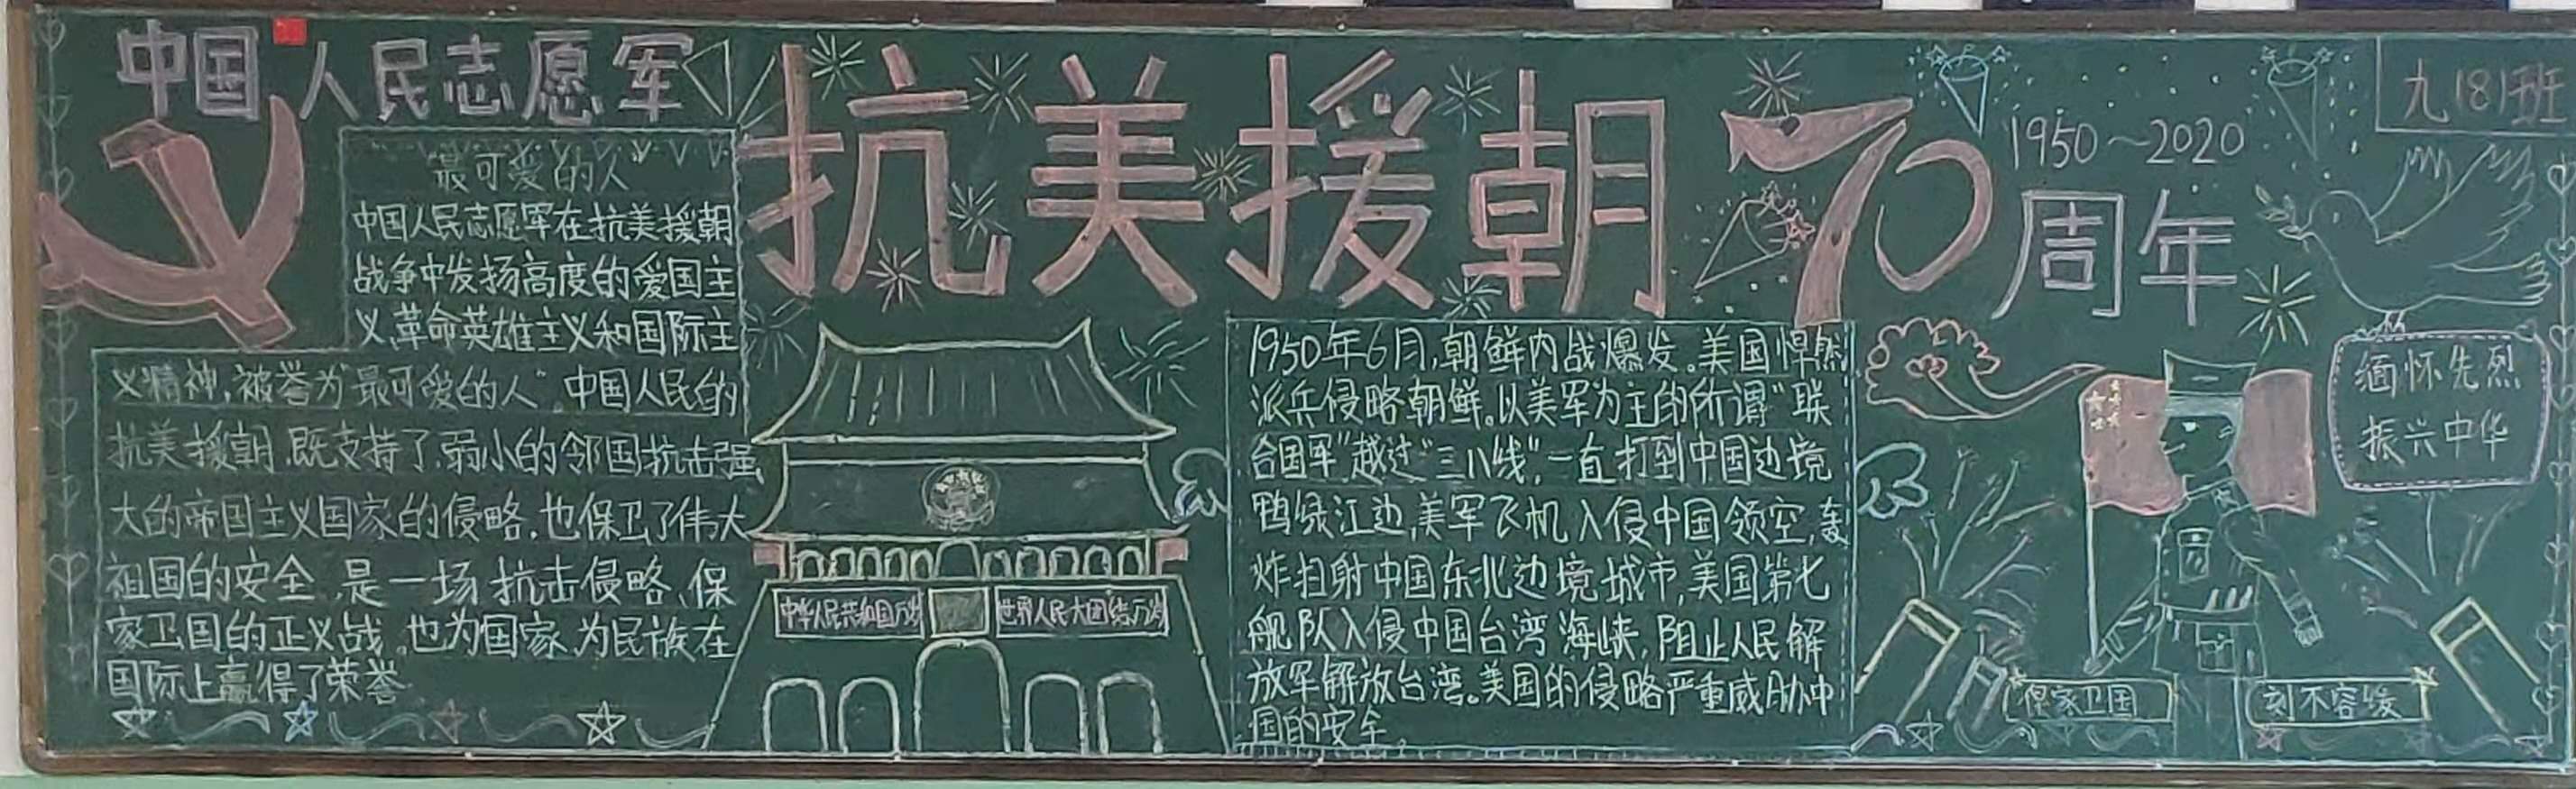 中国人民志愿军
最可爱的人
中国人民志愿军在抗美援朝
战争中发扬高度的爱国主
义,革命英雄主义和国际主
义精神,被誉为"最可爱的人"。中国人民的
抗美援朝,既支持了弱小的邻国抗击强
大的帝国主义国家的侵略,也保卫了伟大
祖国的安全,是一场抗击侵略、保
家卫国的正义战,也为国家,为民族在
国际上赢得了荣誉
抗美援朝70
1950~2020
周年
九(8)班
中华人民共和国万岁
世界人民大团结万岁
1950年6月,朝鲜内战爆发。美国悍然
派兵侵略朝鲜。以美军为主的所谓"联
合国军"越过"三八线",一直打到中国边境
鸭绿江边,美军飞机入侵中国领空,轰
炸扫射中国东北边境城市,美国第七
舰队入侵中国台湾海峡,阻止人民解
放军解放台湾。美国的侵略严重威胁中
国的安全。
缅怀先烈
振兴中华
保家卫国
刻不容缓